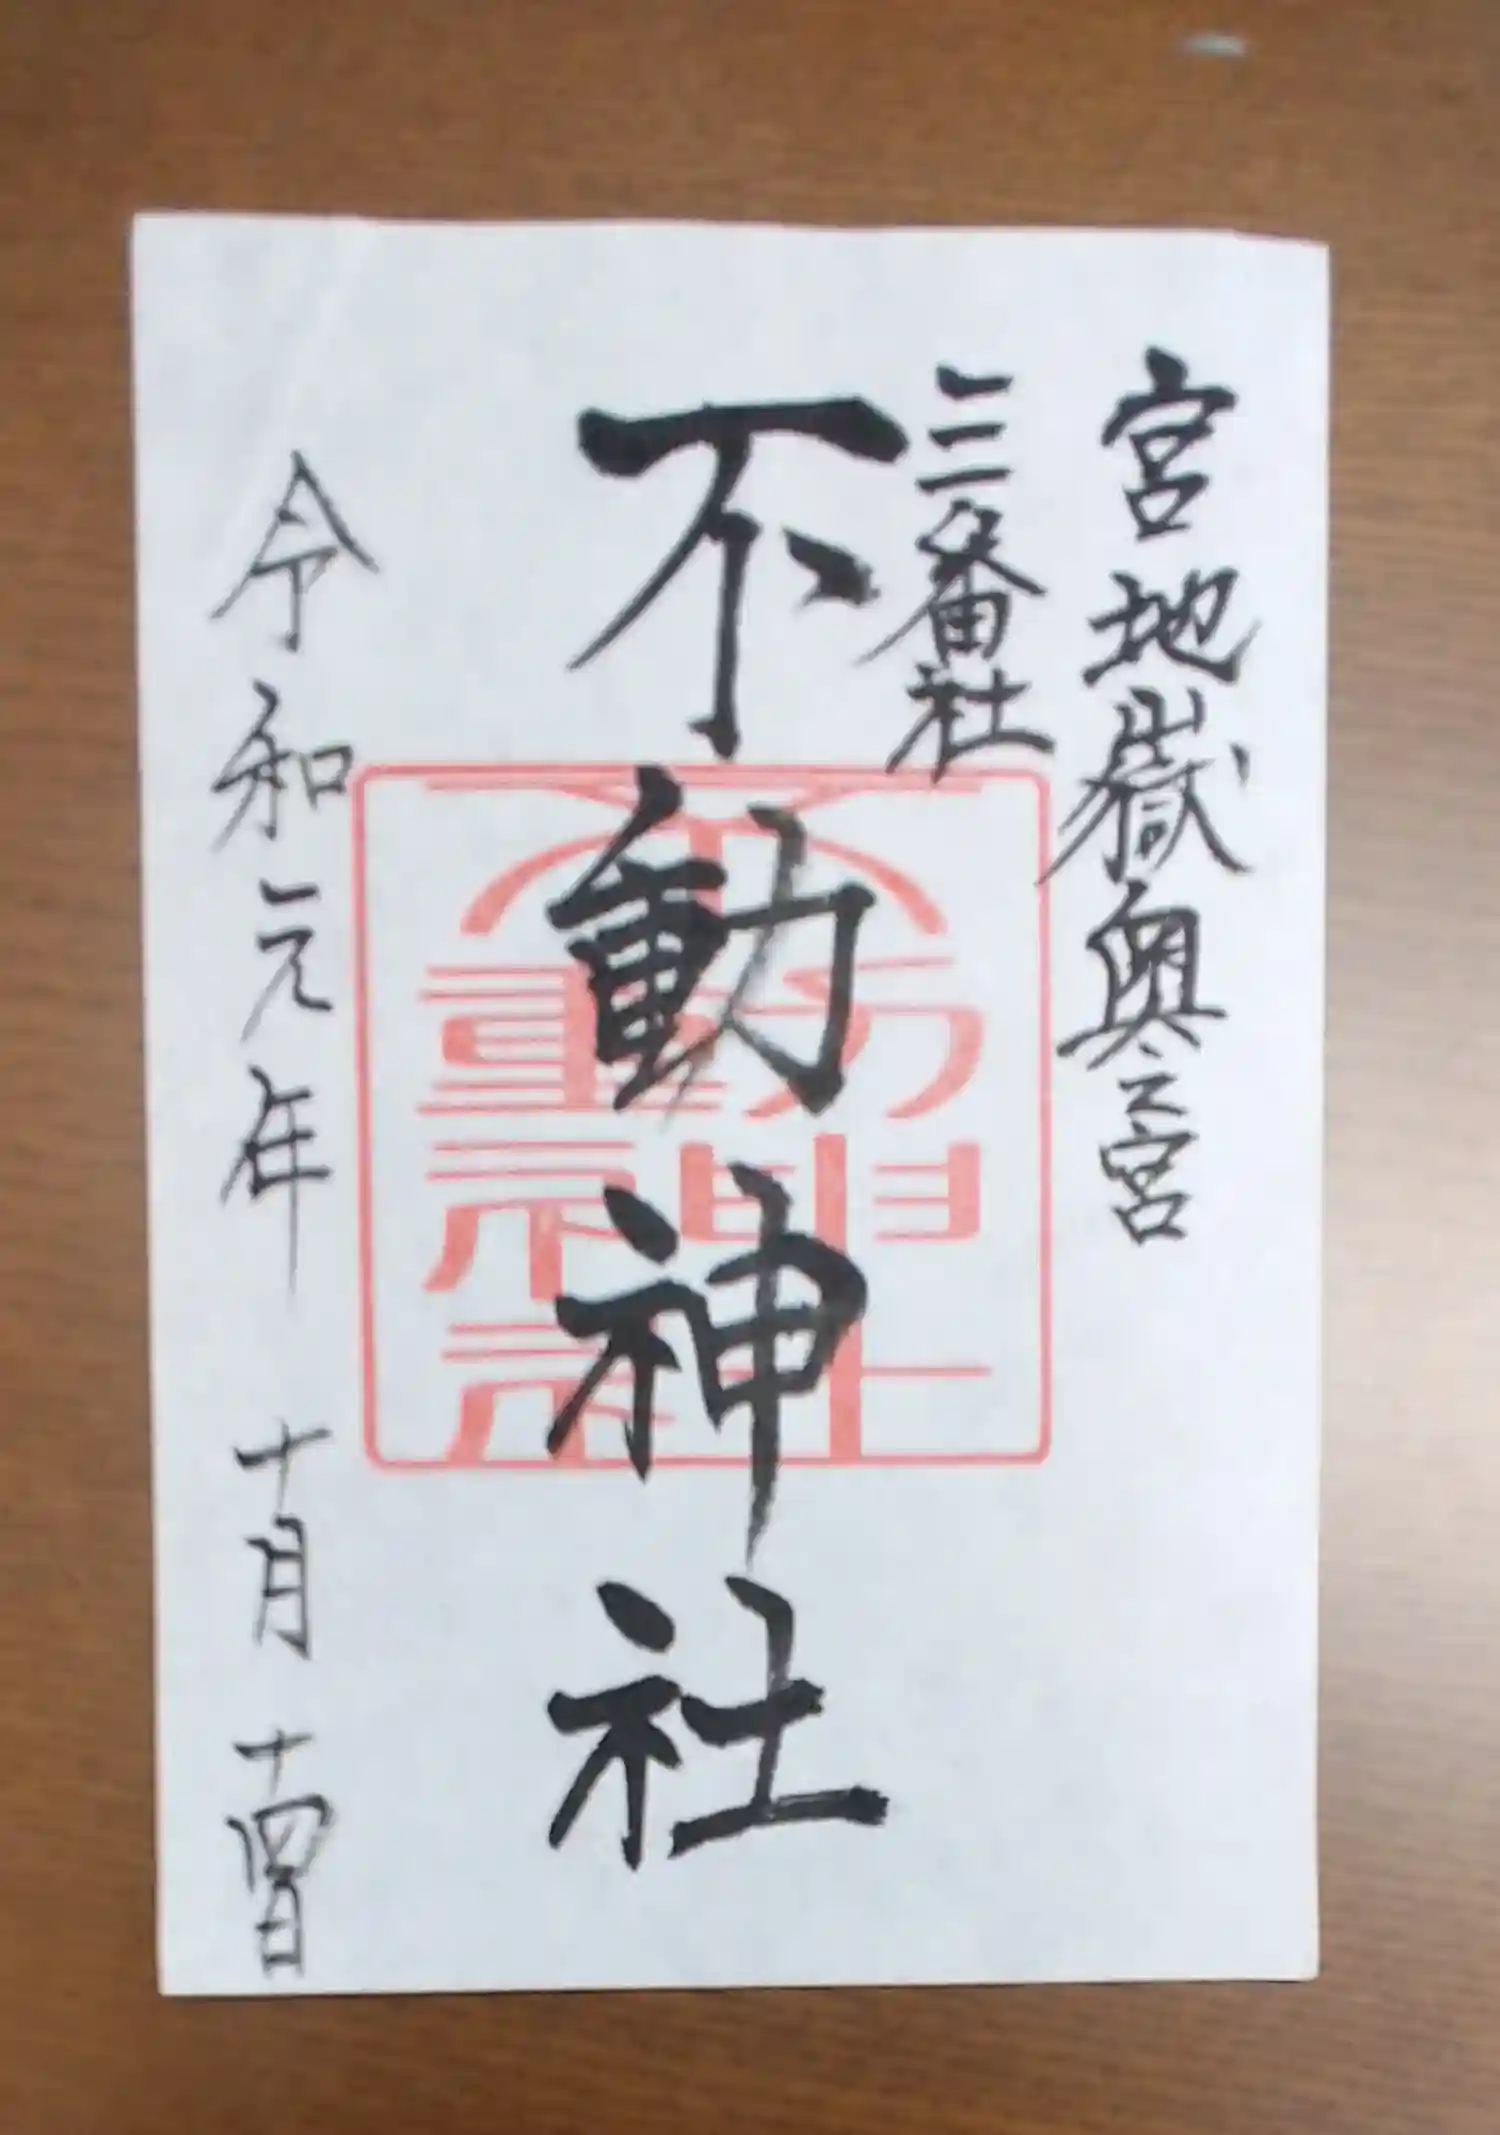 宮地嶽奥之宮
三番社
不動神社
令和元年 十月 十四日